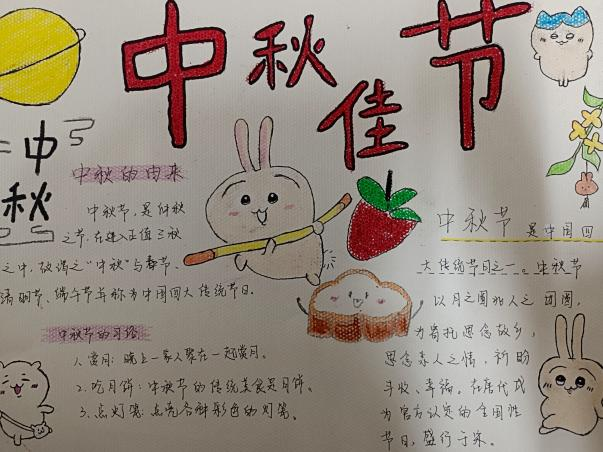 中秋佳节
中
秋
中秋的由来
中秋节,是仲秋
之节,在进入正值三秋
之中,故谓之“中秋”与春节、
清明节、端午节并称为中国四大传统节日。
中秋节的习俗
1.赏月:晚上一家人聚在一起赏月。
2.吃月饼:中秋节的传统美食是月饼。
3.点灯笼:点亮各种彩色的灯笼。
中秋节 是中国四
大传统节日之一。中秋节
以月之圆兆人之团圆,
为寄托思念故乡,
思念亲人之情,祈盼
丰收、幸福。在唐代成
为官方认定的全国性
节日,盛行于宋。